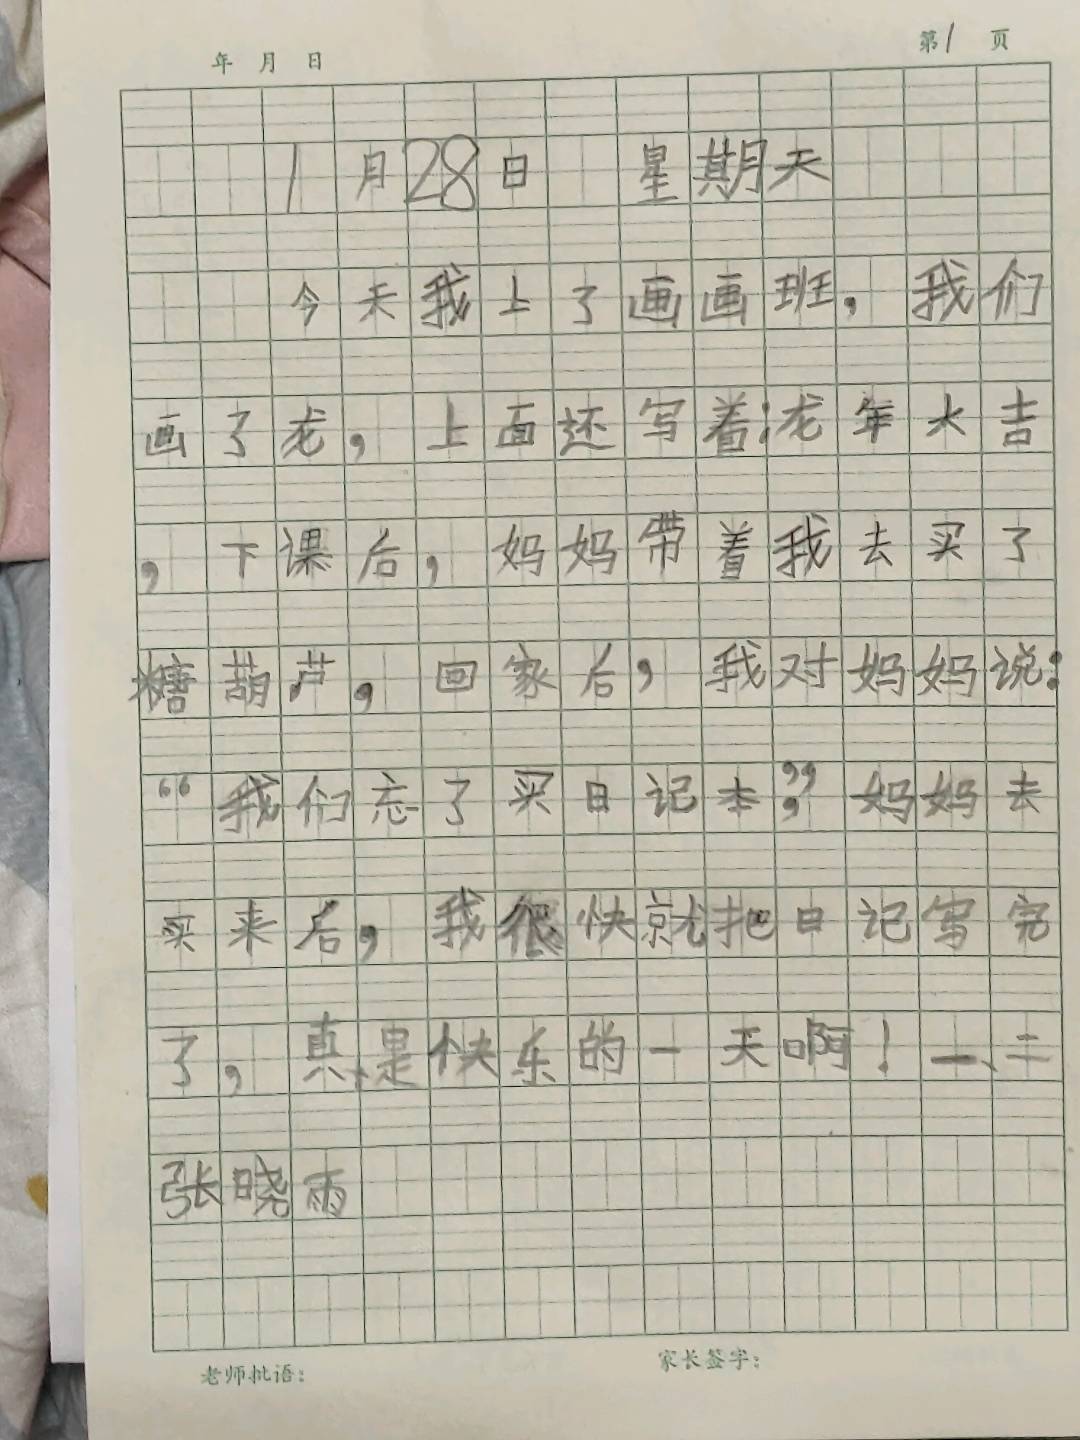 年 月 日 第1页
1月28日 星期天
今天我上了画画班,我们
画了龙,上面还写着:龙年大吉
,下课后,妈妈带着我去买了
糖葫芦,回家后,我对妈妈说:
“我们忘了买日记本”,妈妈去
买来后,我很快就把日记写完
了,真是快乐的一天啊!一、二
张晓雨
老师批语: 家长签字: